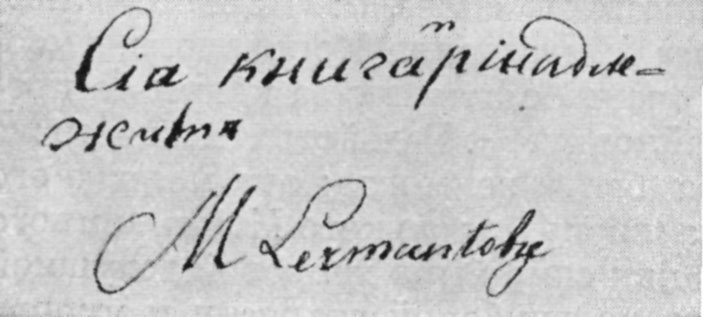 Сіа книга прінадле-
житъ
M Lermantow